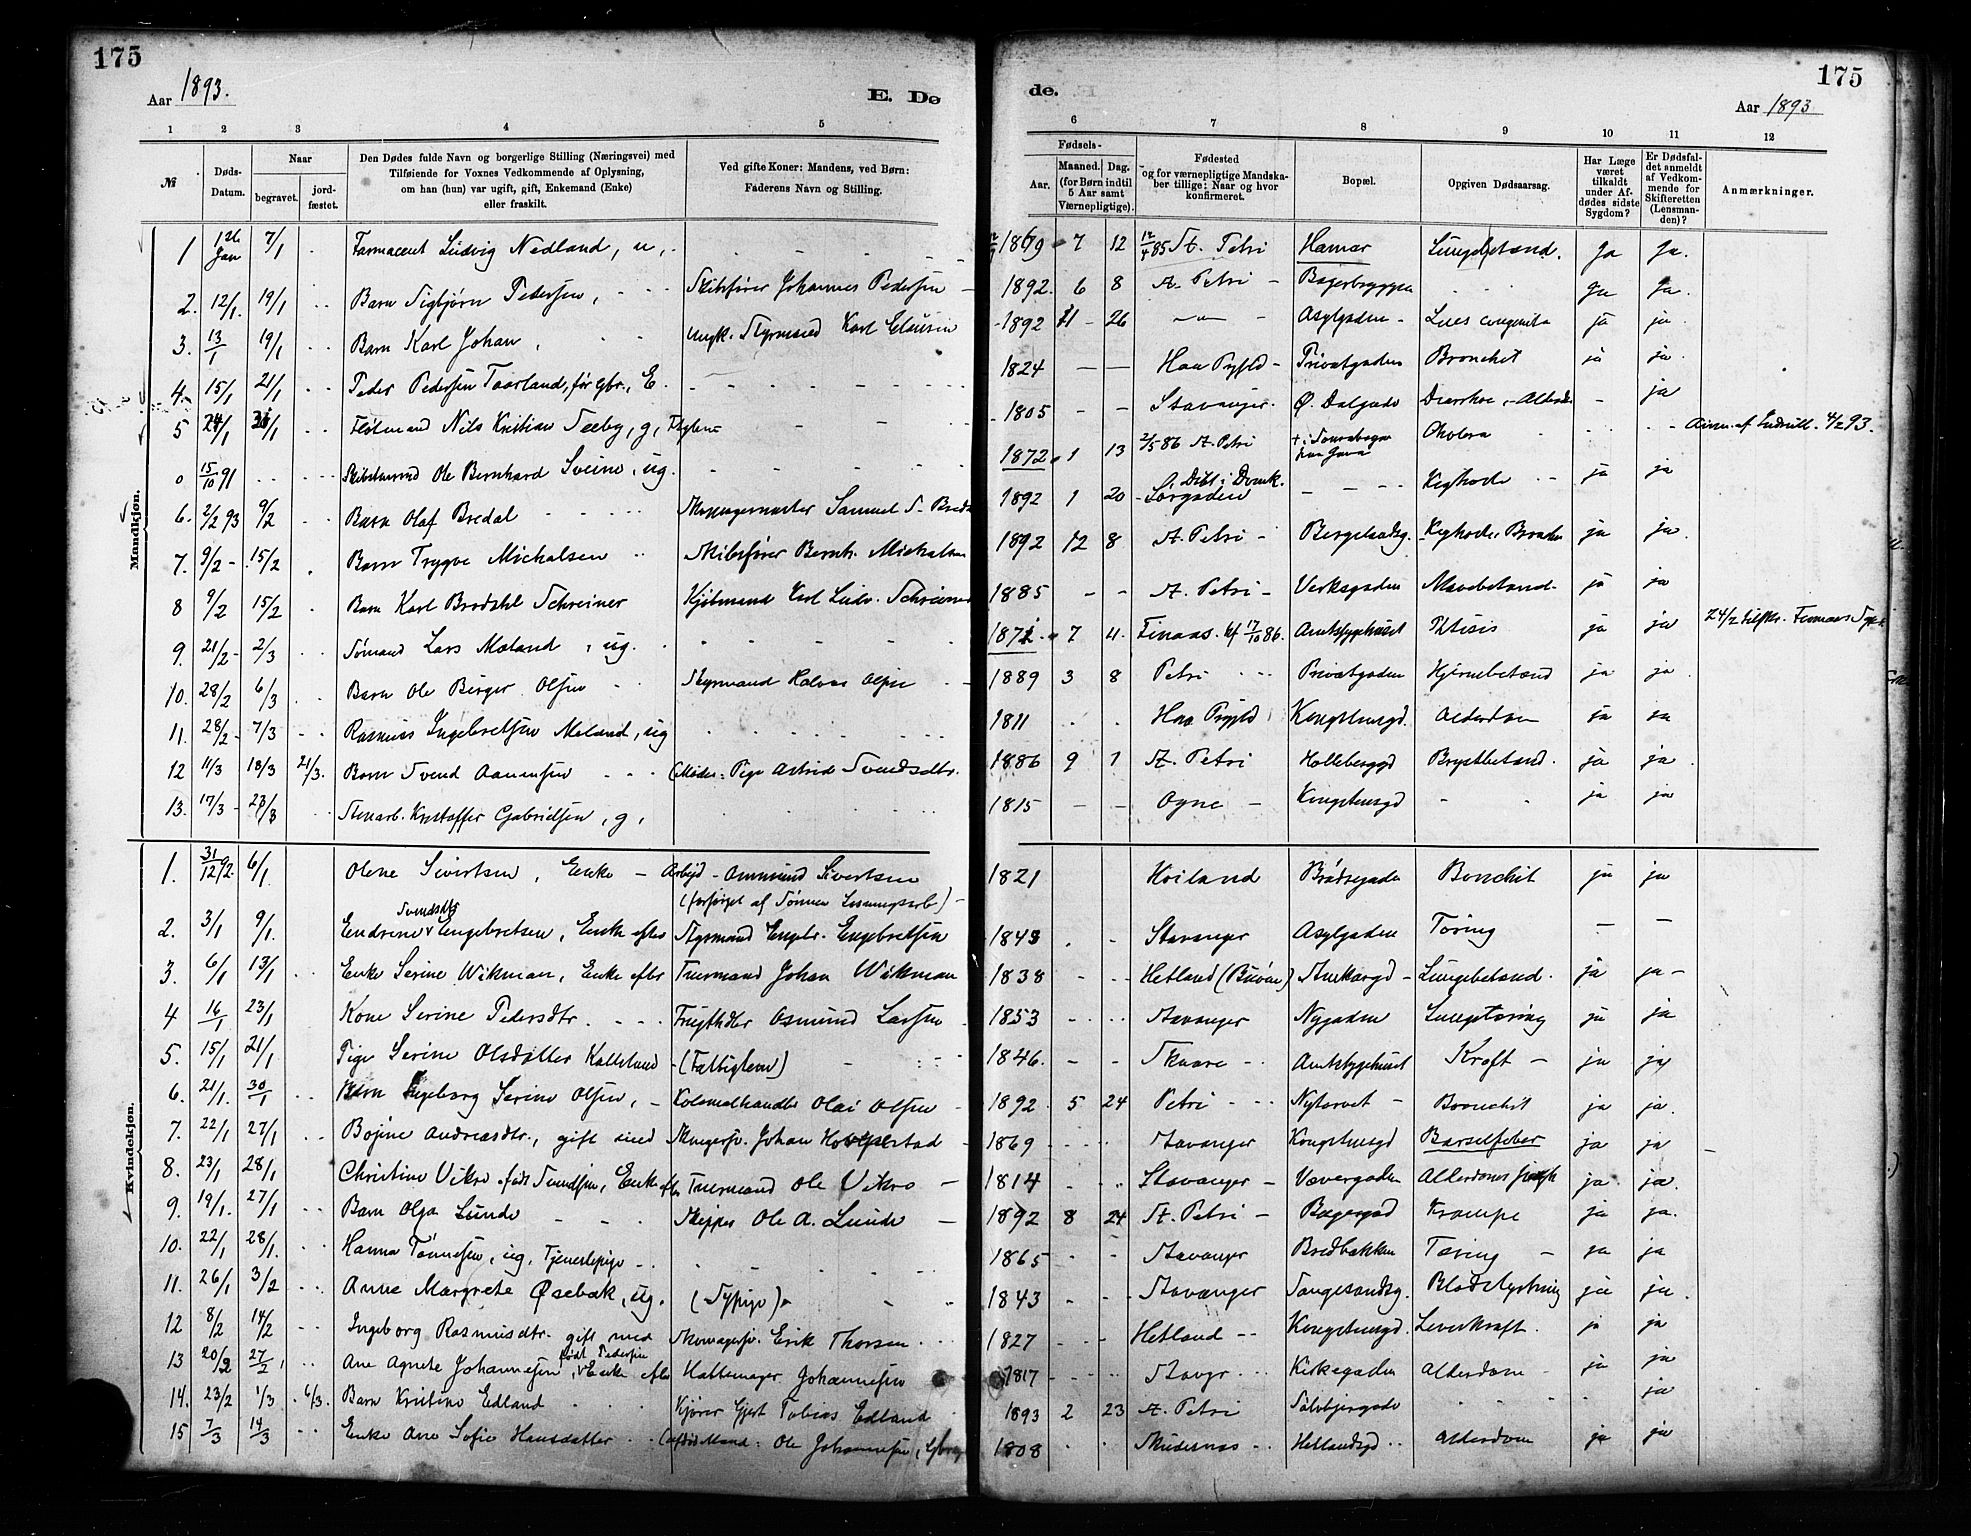 175
Aar 1893.
E. Dø
1 2 3 4 5
№ Døds-Datum. Naar begravet. jord-fæstet.
Den Dødes fulde Navn og borgerlige Stilling (Næringsvei) med
Tilføiende for Voxnes Vedkommende af Oplysning,
om han (hun) var ugift, gift, Enkemand (Enke)
eller fraskilt.
Ved gifte Koner: Mandens, ved Børn:
Faderens Navn og Stilling.
Mandkjøn.
1 1ste Jan 7/1 Farmaceut Ludvig Nedland, u,
2. 12/1. 19/1 Barn Sigbjørn Pedersen, Skibsfører Johannes Pedersen
3. 13/1 19/1 Barn Karl Johan, ungk. Styrmand Karl Clausen
4. 15/1 21/1 Peder Pedersen Taarland, før gbr., E.
5 24/1 Nils Kristian Seeby, g,
0 15/10 91 Ole Bernhard Sveine, ug.
6. 2/2 93 9/2 Barn Olaf Bredal Samuel S. Bredal
7. 9/2 15/2 Barn Trygve Michalsen Skibsfører Bernh. Michalsen
8 9/2 15/2 Barn Karl Brodahl Schreiner Kjøbmand Carl Ludv. Schreiner
9. 21/2 2/3 Sømand Lars Maland, ug.
10. 28/2 6/3 Barn Ole Birger Olsen Styrmand Halvor Olsen
11. 28/2 7/3 Rasmus Ingebretsen Maland, ug
12 11/3 18/3 21/3. Barn Svend Aanensen (Moder: Pige Astrid Svendsdtr.
13. 17/3 23/3 Stenarb. Kristoffer Gabrielsen, g,
Kvindekjøn.
1. 31/12 92. 6/1 Olene Sivertsen, Enke Arbejd Ommund Sivertsen
(forsørget af Sønnen
Svendsdtr
2. 3/1 9/1. Endrine Engebretsen, Enke efter Styrmand Engebr. Engebretsen
3. 6/1 13/1 Enke Serine Wikman, Enke efter Tuermand Johan Wikman
4 16/1 23/1 Kone Serine Pedersdtr. Frugthdler Osmund Larsen
5. 15/1 21/1 Pige Serine Olsdatter Kalleland (Fattiglem)
6. 21/1. 30/1 Barn Ingeborg Serine Olsen, Kolonialhandler Olai Olsen
7. 22/1 27/1 Bojine Andreasdtr., gift med Johan
8. 23/1 28/1 Christine Vikro, født Svendsen, Enke efter Tuermand Ole Vikro
9. 19/1. 27/1 Barn Olga Lunde Skipper Ole A. Lunde
10. 22/1 28/1. Hanna Tønnesen, ug, Tjenestepige
11. 26/1 3/2 Anne Margrete Øsebak, ug. (Sypige)
12 8/2 14/2 Ingeborg Rasmusdtr. gift med Skomagersv. Erik Thorsen
født Pedersen
13 20/2 27/2 Ane Agnete Johannesen, Enke efter Hattemager Johannesen
14. 23/2 1/3 6/3. Barn Kristine Edland Kjører Gjert Tobias Edland
15 7/3 14/3 Enke Ane Sofie Hansdatter Mand: Ole Johannesen,
de.
175
Aar 1893
6 7 8 9 10 11 12
Fødsels-
Aar. Maaned. Dag. (for Børn indtil 5 Aar samt Værnepligtige).
Fødested
og for værnepligtige Mandska-
ber tillige: Naar og hvor
konfirmeret.
Bopæl.
Opgiven Dødsaarsag.
Har Læge
været
tilkaldt
under Af-
dødes sidste
Sygdom?
Er Dødsfal-
det anmeldt
af Vedkom-
mende for
Skifteretten
(Lensman-
den)?
Anmærkninger.
1869 7 12 12/4 85 St. Petri Hamar Lungebetænd. Ja Ja.
1892. 6 8 St. Petri Bagerbryggen Ja Ja.
1892 11 26 Asylgaden Lues congenita ja ja
1824 Haa Prgjeld Privatgaden Bronchit ja ja
1805 Stavanger. Ø. Dalgade Diarrhoe, ja
1872 1 13 2/5 86 St. Petri Cholera 4/2 93.
1892 1 20 Kighoste ja ja
1892 12 8 St. Petri Bergelandsg. Kighoste, ja ja
1885 St. Petri Verksgaden Mavebetænd. ja ja
1871 7 4. 17/10 86. Amtssygehuset Phtisis ja ja 24/2
1889 3 8 Petri Privatgaden Hjernebetænd ja ja
1811 Haa Prgjld Kongstensgd. Alderdom ja ja
1886 9 1 St. Petri Hollebergsgd Brystbetænd. ja ja
1815 Ogne Kongstensgd ja ja
1821 Høiland Brødregade Bronchit ja ja
1843 Stavanger Asylgaden Tæring
1838 Hetland (Buøen) Lungebetænd. ja ja
1853 Stavanger Nygaden Lungetæring ja ja
1846. Skaare Amtssygehuset Kræft ja ja
1892 5 24 Petri Nytorvet Bronchit ja ja.
1869 Stavanger Kongstensgd Barselfeber ja ja
1814 Stavanger Vævergaden ja ja.
1892 8 24 St. Petri Bagergad Krampe ja ja.
1865 Stavanger Bredbakken Tæring ja ja
1843 Stavanger Langesandsg. Blodstyrtning ja ja.
1827 Hetland Kongstensgd. Leverkræft. ja ja
1817 Stavgr Kirkegaden Alderdom ja ja
1893 2 23 St. Petri Sølvbjergade ja
1808 Skudesnæs Hetlandsgd Alderdom ja ja